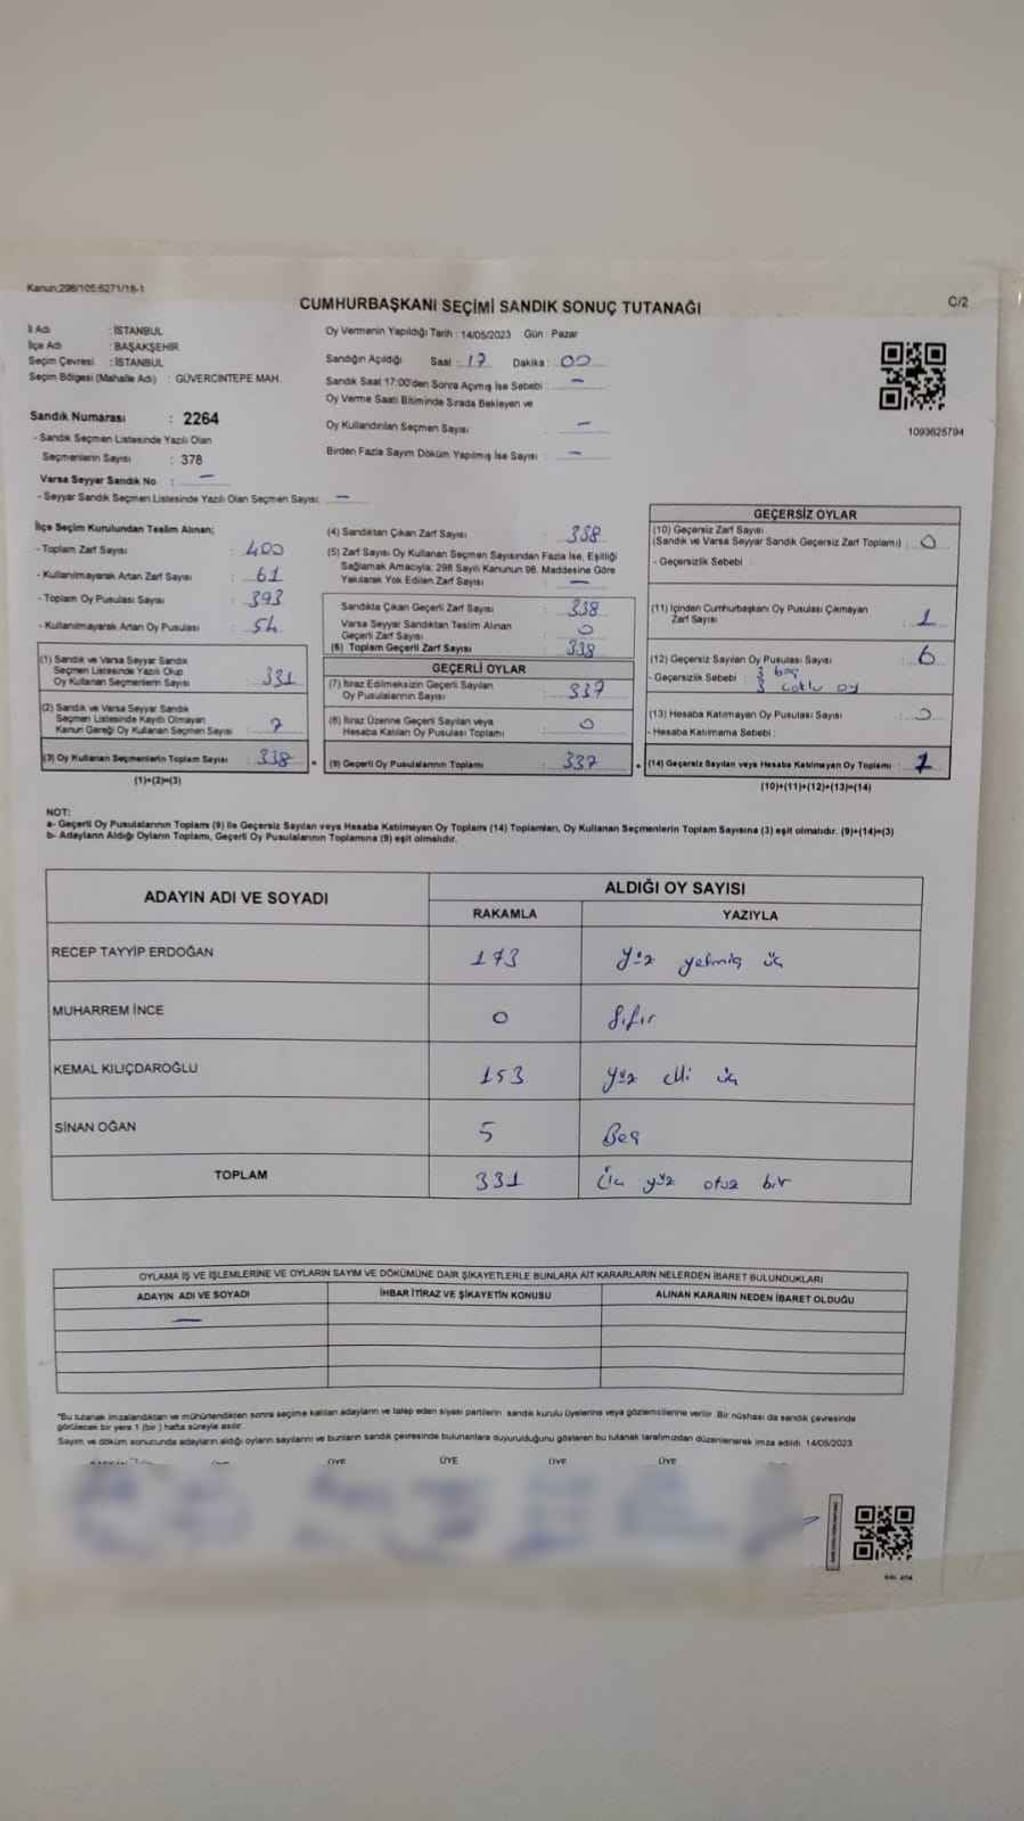 Kanun:298/105:6271/18-1
CUMHURBAŞKANI SEÇİMİ SANDIK SONUÇ TUTANAĞI
C/2
İl Adı : İSTANBUL
İlçe Adı : BAŞAKŞEHİR
Seçim Çevresi : İSTANBUL
Seçim Bölgesi (Mahalle Adı) : GÜVERCİNTEPE MAH.
Sandık Numarası : 2264
- Sandık Seçmen Listesinde Yazılı Olan
Seçmenlerin Sayısı : 378
Varsa Seyyar Sandık No : -
- Seyyar Sandık Seçmen Listesinde Yazılı Olan Seçmen Sayısı: -
Oy Vermenin Yapıldığı Tarih : 14/05/2023 Gün : Pazar
Sandığın Açıldığı Saat : 17 Dakika : 00
Sandık Saat 17:00'den Sonra Açımış İse Sebebi : -
Oy Verme Saati Bitiminde Sırada Bekleyen ve
Oy Kullandırılan Seçmen Sayısı : -
Birden Fazla Sayım Döküm Yapılmış İse Sayısı : -
1093625794
İlçe Seçim Kurulundan Teslim Alınan;
- Toplam Zarf Sayısı : 400
- Kullanılmayarak Artan Zarf Sayısı : 61
- Toplam Oy Pusulası Sayısı : 393
- Kullanılmayarak Artan Oy Pusulası : 54
(1) Sandık ve Varsa Seyyar Sandık
Seçmen Listesinde Yazılı Olup
Oy Kullanan Seçmenlerin Sayısı : 331
(2) Sandık ve Varsa Seyyar Sandık
Seçmen Listesinde Kayıtlı Olmayan
Kanun Gereği Oy Kullanan Seçmen Sayısı : 7
(3) Oy Kullanan Seçmenlerin Toplam Sayısı : 338
(1)+(2)=(3)
(4) Sandıktan Çıkan Zarf Sayısı : 338
(5) Zarf Sayısı Oy Kullanan Seçmen Sayısından Fazla İse, Eşitliği
Sağlamak Amacıyla; 298 Sayılı Kanunun 98. Maddesine Göre
Yakılarak Yok Edilen Zarf Sayısı : -
Sandıkta Çıkan Geçerli Zarf Sayısı : 338
Varsa Seyyar Sandıktan Teslim Alınan
Geçerli Zarf Sayısı : 0
(6) Toplam Geçerli Zarf Sayısı : 338
GEÇERLİ OYLAR
(7) İtiraz Edilmeksizin Geçerli Sayılan
Oy Pusulalarının Sayısı : 337
(8) İtiraz Üzerine Geçerli Sayılan veya
Hesaba Katılan Oy Pusulası Toplamı : 0
(9) Geçerli Oy Pusulalarının Toplamı : 337
GEÇERSİZ OYLAR
(10) Geçersiz Zarf Sayısı
(Sandık ve Varsa Seyyar Sandık Geçersiz Zarf Toplamı) : 0
- Geçersizlik Sebebi :
(11) İçinden Cumhurbaşkanı Oy Pusulası Çıkmayan
Zarf Sayısı : 1
(12) Geçersiz Sayılan Oy Pusulası Sayısı : 6
- Geçersizlik Sebebi : 3 boş
3 çoklu oy
(13) Hesaba Katılmayan Oy Pusulası Sayısı : 0
- Hesaba Katılmama Sebebi :
(14) Geçersiz Sayılan veya Hesaba Katılmayan Oy Toplamı : 7
(10)+(11)+(12)+(13)=(14)
NOT:
a- Geçerli Oy Pusulalarının Toplamı (9) ile Geçersiz Sayılan veya Hesaba Katılmayan Oy Toplamı (14) Toplamları, Oy Kullanan Seçmenlerin Toplam Sayısına (3) eşit olmalıdır. (9)+(14)=(3)
b- Adayların Aldığı Oyların Toplamı, Geçerli Oy Pusulalarının Toplamına (9) eşit olmalıdır.
ADAYIN ADI VE SOYADI
ALDIĞI OY SAYISI
RAKAMLA YAZIYLA
RECEP TAYYİP ERDOĞAN 173 yüz yetmiş üç
MUHARREM İNCE 0 Sıfır
KEMAL KILIÇDAROĞLU 153 yüz elli üç
SİNAN OĞAN 5 Beş
TOPLAM 331 Üç yüz otuz bir
OYLAMA İŞ VE İŞLEMLERİNE VE OYLARIN SAYIM VE DÖKÜMÜNE DAİR ŞİKAYETLERLE BUNLARA AİT KARARLARIN NELERDEN İBARET BULUNDUKLARI
ADAYIN ADI VE SOYADI İHBAR İTİRAZ VE ŞİKAYETİN KONUSU ALINAN KARARIN NEDEN İBARET OLDUĞU
-
*Bu tutanak imzalandıktan ve mühürlendikten sonra seçime katılan adayların ve talep eden siyasi partilerin sandık kurulu üyelerine veya gözlemcilerine verilir. Bir nüshası da sandık çevresinde
görülecek bir yere 1 (bir ) hafta süreyle asılır.
Sayım ve döküm sonucunda adayların aldığı oyların sayılarını ve bunların sandık çevresinde bulunanlara duyurulduğunu gösteren bu tutanak tarafımızdan düzenlenerek imza edildi. 14/05/2023
ÜYE ÜYE ÜYE ÜYE